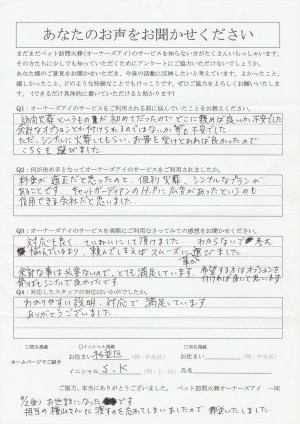 あなたのお声をお聞かせください
まだまだペット訪問火葬(オーナーズアイ)のサービスを知らない方がたくさんいらっしゃいます。
その方たちに少しでも知っていただくためにアンケートにご協力いただけないでしょうか。
あなた様のご意見をお聞かせいただき、今後の活動に反映したいと考えています。よかったこと、
嬉しかったこと、どのような些細なことでもけっこうです。ぜひご協力をよろしくお願いいたします。
(できるだけ具体的に書いていただけると助かります!)
Q1:オーナーズアイのサービスをご利用される前に悩んでいたことをお教えください。
訪問火葬というもの が初めてだったので どこに頼めば良いか不安でした
余計なオプションとか付けられるのではないか 等も不安でした
ただ、シンプルに火葬してもらい、お骨を受けとれれば良かったので
こちらを選びました
Q2:何が決め手となってオーナーズアイのサービスをご利用されましたか。
料金が適正だと思ったのと、個別火葬、シンプルなプランが
あることです キャットガーディアンのH.Pに広告があったというのも
信用できる会社だと思いました
Q3:オーナーズアイのサービスを実際にご利用なさってみての感想をお聞かせください。
対応も良く、ていねいにして頂けました わからない
悩んでいるより、頼んでもえばスムーズに運びました
余計な事は必要ないので、とても満足しています
骨つぼもシンプルで良かったです
希望する方はオプションを
付ければ良いと思います
Q4:対応したスタッフの対応はいかがでしたか。
わかりやすい説明、対応で 満足しています
ありがとうございました
□匿名掲載 ☑イニシャル掲載 □実名掲載
ホームページでご紹介
お住まい 杉並区 (例:中央区) お住まい (例:中央区)
イニシャル S.K (例:T.H) 氏名
ご協力、本当にありがとうございました。 ペット訪問火葬オーナーズアイ 一同
お世話になった です
担当の横山さんに渡すのを忘れてしまいましたので 郵送いたしました